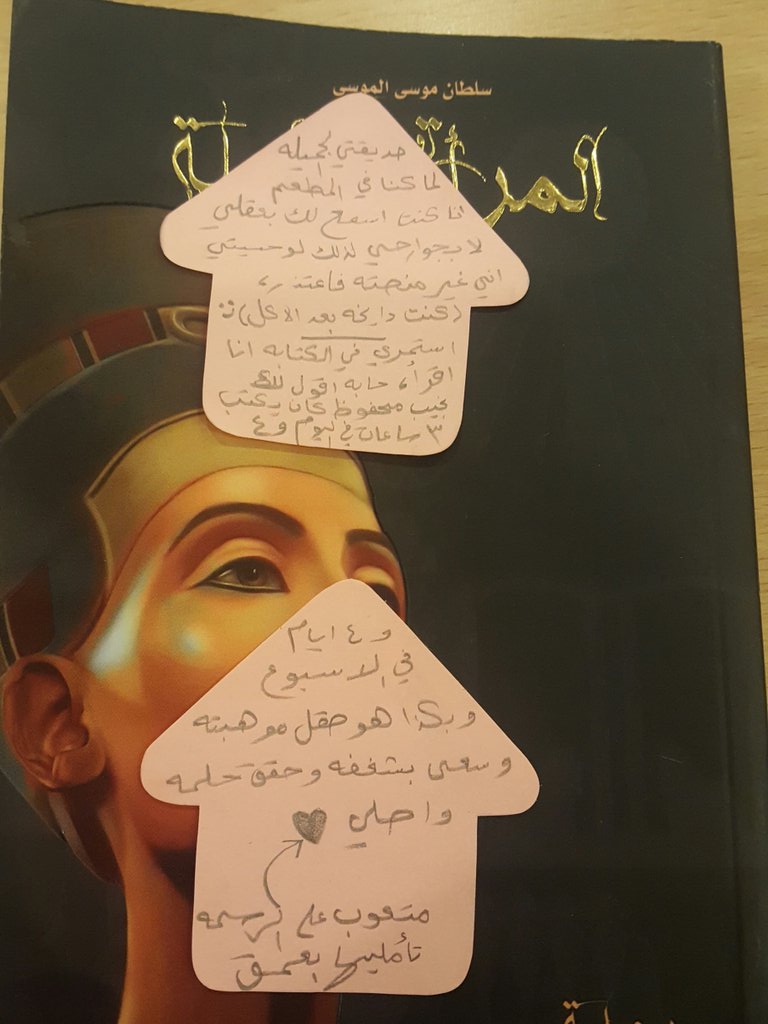 سلطان موسى الموسى
المرأة
صديقتي الجميله
لما كنا في المطعم
انا كنت اسمع لك بعقلي
لا بجوارحي لذلك لو حسيتي
اني غير منصته فاعتذر،
(كنت دايخه بعد الاكل) :
استمري في الكتابه انا
اقرأ، حابه اقول لك
نجيب محفوظ كان يكتب
٣ ساعات في اليوم و ٤
و ٤ ايام
في الاسبوع
وبكذا هو صقل موهبته
وسعى بشغفه وحقق حلمه
واصلي ♥
متعوب على الرسمه
تأمليها بعمق